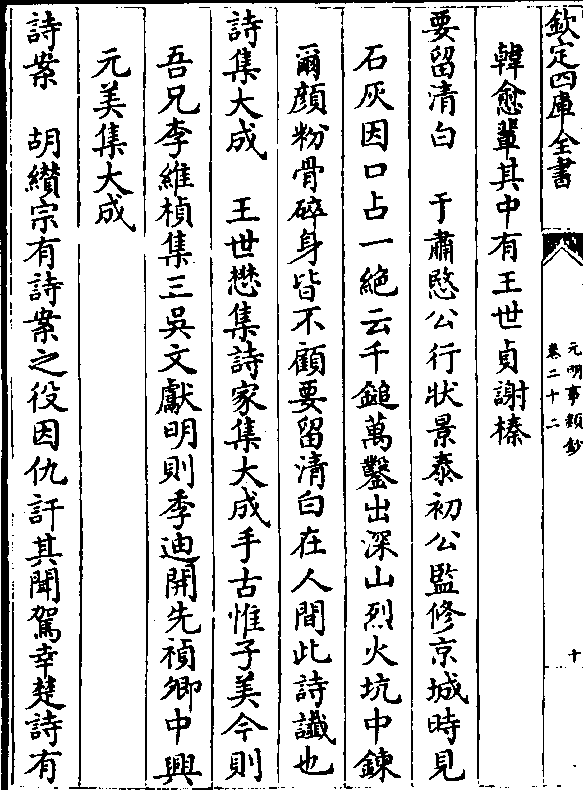 欽定四庫全書
元明事類鈔
卷二十二
十
韓愈輩其中有王世貞謝榛
要留清白　于肅愍公行狀景泰初公監修京城時見
石灰因口占一絶云千鎚萬鑿出深山烈火坑中鍊
爾顔粉骨碎身皆不顧要留清白在人間此詩讖也
詩集大成　王世懋集詩家集大成手古惟子美今則
吾兄李維楨集三吳文獻明則季迪開先禎卿中興
元美集大成
詩案　胡纘宗有詩案之役因仇訐其聞駕幸楚詩有